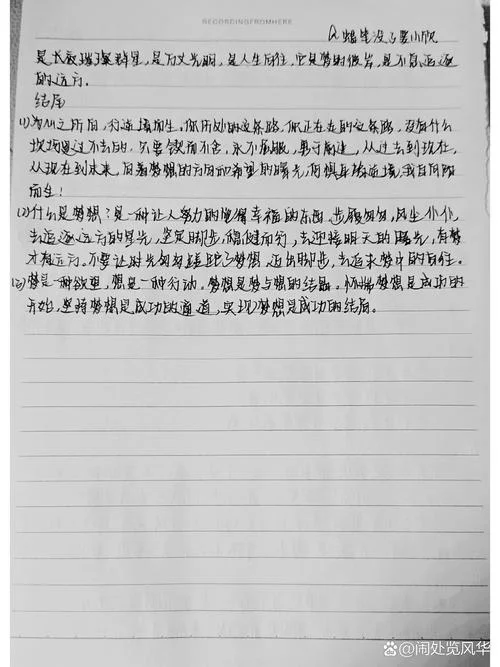 RECORDINGFROMHERE
是长夜璀璨群星,是万丈光明,是人生向往,它是梦的彼岸,是不息追逐
的远方。
结尾
(1)为心之所向,行逆境而生。你历处的这条路,你正在走的这条路,没有什么
坎坷是过不去的,只要锲而不舍,永不屈服,勇于前进,从过去到现在,
从现在到未来,向着梦想的方向和希望的曙光,何惧身披逆境,我自向阳
而生!
(2)什么是梦想?是一种让人努力的饱含幸福的东西,步履匆匆,风尘仆仆,
去追逐远方的星光,坚定脚步,稳健而行,去迎接明天的曙光,有梦
才有远方。不要让时光匆匆梦想,迈出脚步,去追求梦中的自任。
(3)梦是一种欲望,想是一种行动。梦想是梦与想的结晶。怀揣梦想是成功的
开始,坚持梦想是成功的通道,实现梦想是成功的结局。
@闹处览风华